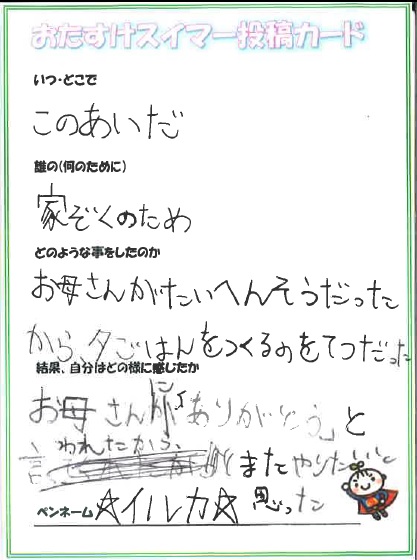 おたすけスイマー投稿カード
いつ・どこで
このあいだ
誰の(何のために)
家ぞくのため
どのような事をしたのか
お母さんがたいへんそうだった
から、夕ごはんをつくるのをてつだった
結果、自分はどの様に感じたか
お母さんに「ありがとう」と
言われたから、
またやりたいと
思った
ペンネーム ☆イルカ☆